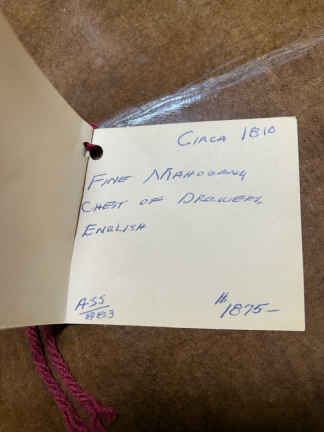 CIRCA 1810
FINE MAHOGANY
CHEST OF DRAWERS,
ENGLISH
A-55
#1875-